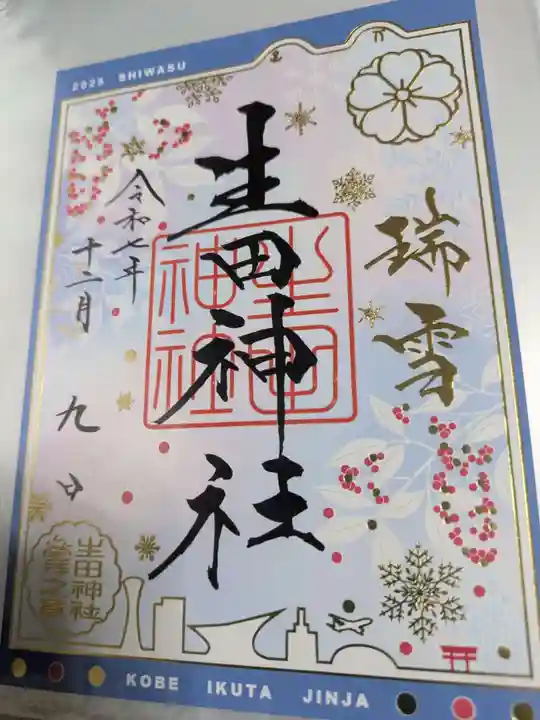 2025 SHIWASU
瑞雪
生田神社
生田神社
令和七年
十二月
九日
生田神社
KOBE IKUTA JINJA